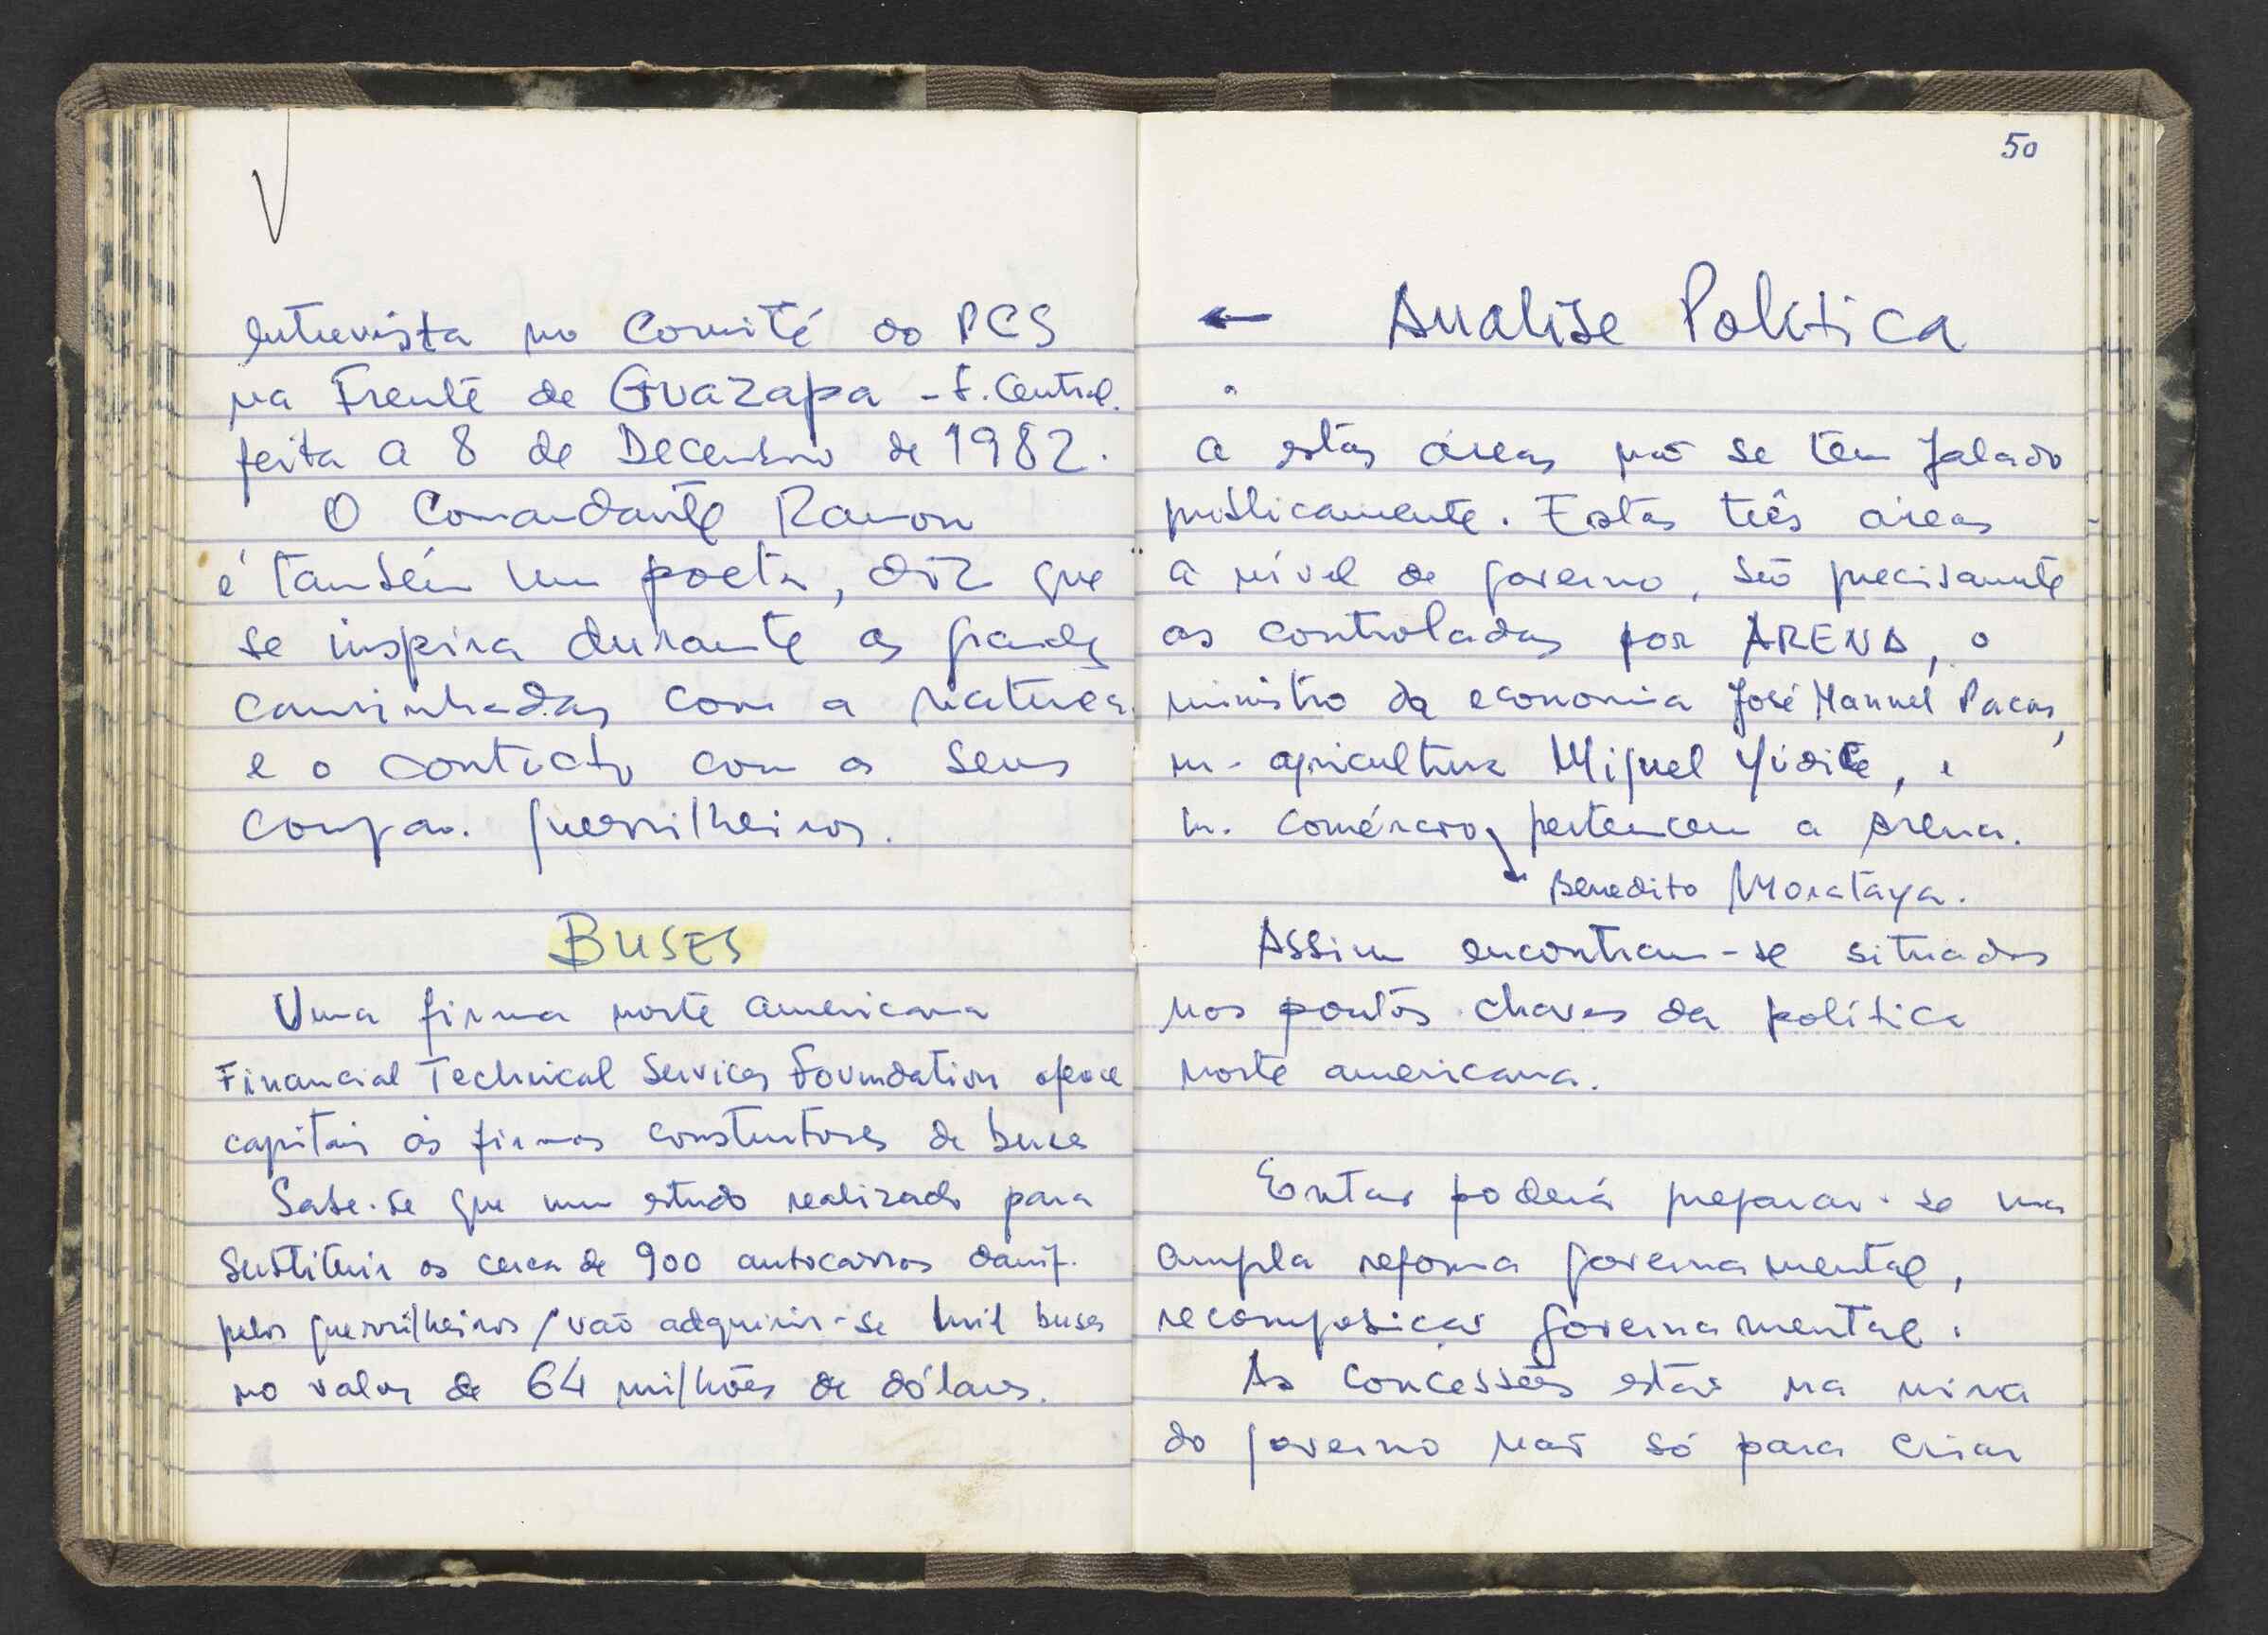 entrevista no Comité do PCS
na Frente de Guazapa - F. Central.
feita a 8 de Decembro de 1982.
O Comandante Ramon
é também um poeta, diz que
se inspira durante as grandes
caminhadas com a natureza
e o contacto com os seus
compan. guerrilheiros.
BUSES
Uma firma norte americana
Financial Technical Services Foundation oferece
capitais ás firmas construtoras de buses
Sabe-se que num estudo realizado para
substituir os cerca de 900 autocarros danif.
pelos guerrilheiros, vão adquirir-se mil buses
no valor de 64 milhões de dólares.
50
← Analise Politica
a estas áreas não se tem falado
publicamente. Estas três áreas
a nível de governo, são precisamente
as controladas por ARENA, o
ministro da economia José Manuel Pacas,
m. agricultura Miguel Yúdice, e
m. comércio, pertencem a Arena.
Benedito Morataya.
Assim encontram-se situados
nos pontos chaves da política
norte americana.
Então poderá preparar-se uma
ampla reforma governamental,
recomposição governamental.
As concessões estão na mira
do governo não só para criar